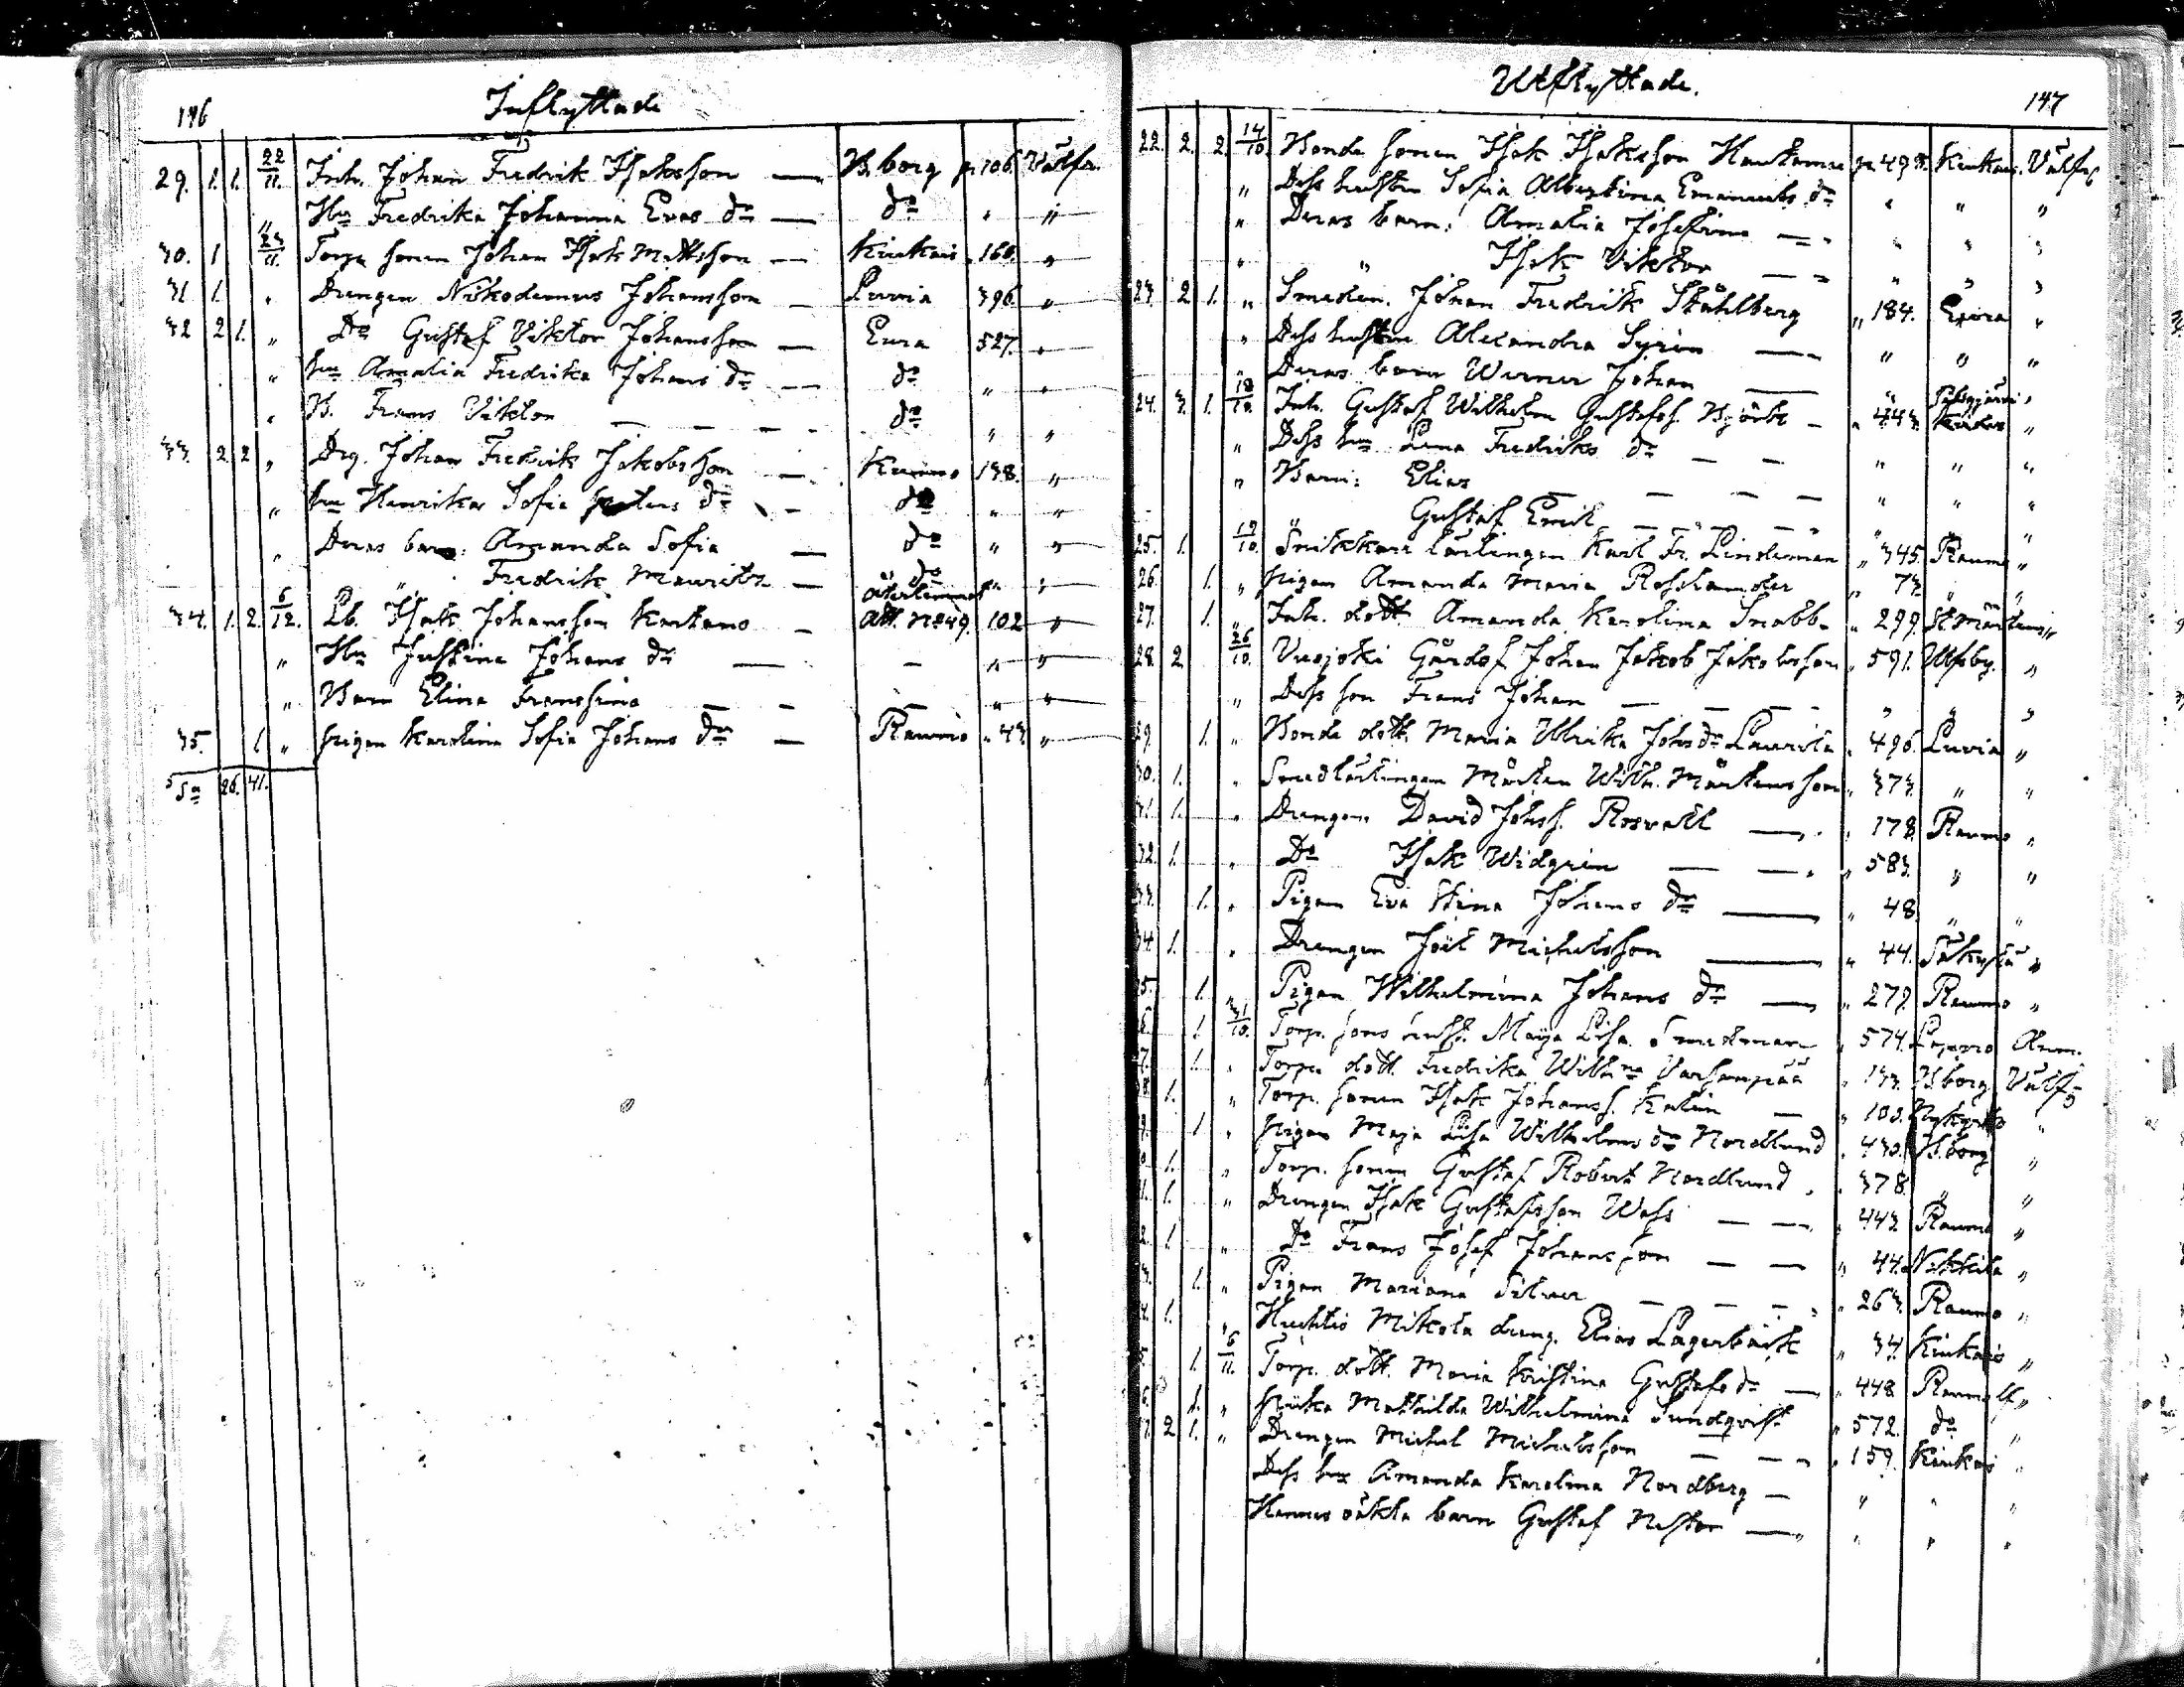 146 Inflyttade
29. 1. 1. 22/11. Inh. Johan Fredrik Isaksson — B.borg p. 106. Välfr.
" Hu Fredrika Johanna Evas dr — do " "
30. 1 23/11. Torp. sonen Johan Isak Mattsson — Kiukais " 160. "
31 1. " Drengen Nikodemus Johansson — Luvia 396. "
32 2 1. " Do Gustaf Viktor Johansson — Eura 527. "
" hu Amalia Fredrika Johans dr — do " "
" B. Frans Viktor — — — do " "
33. 2 2 " Drg. Johan Fredrik Jakobsson — Kiumo 138. "
" hu Henrika Sofia dr — do " "
" Deras barn: Amanda Sofia — do " "
" " Fredrik Mauritz — do " "
34. 1. 2. 6/12. Lb. Isak Johansson Kartano — Återkommit Att. No 49. 102 "
" Hu Justina Johans dr — — " "
" Barn Elina Franssina — — — " "
35. 1 " pigan Karolina Sofia Johans dr — Raumo " 43 "
Sa 26. 41.
Utflyttade. 147
22. 2. 2. 14/10. Bonde sonen Isak Isaksson p. 493. Kiukais. Välfr
" Dess hustru Sofia Albertina Emanuels dr " " "
" Deras barn: Amalia Josefina — " " "
" " Isak Viktor — " " "
23. 2 1. " Smeden. Johan Fredrik Ståhlberg " 184. Eura "
" Dess hustru Alexandra Syrén — " " "
" Deras barn Werner Johan — "
24. 3. 1. 18/10. Inh. Gustaf Wilhelm Gustafss. Björk — " 443. "
" Dess hu Lena Fredriks dr — — " " "
" Barn: Elias — — — — " " "
" Gustaf Emil — — — " "
25. 1. 19/10. Snikkare lärlingen Karl Fr. Lindeman " 345. Raumo "
26. 1. " pigan Amanda Maria Rosslander " 73. " "
27. 1. " Inh. dott. Amanda Karolina Snabb — " 299. St. Mårtens "
28. 2 26/10. Vuojoki Gårdsf. Johan Jakob Jakobsson " 591. Ulfsby. "
" Dess son Frans Johan — — — " " "
29. 1. " Bonde dott. Maria Ulrika Johs dr Laurila " 496. Luvia "
30. 1. " Smedlärlingen Mårten Wilh. Mårtensson " 373. " "
31. 1. " Drengen David Johss. Rosvall — " 178. Raumo "
32. 1. " Do Isak Widgrén — — " 583. " "
33. 1. " Pigan Eva Stina Johans dr — " 48. " "
34 1. " Drengen Joël Michelsson — " 44. Säkylä "
35. 1. " Pigan Wilhelmina Johans dr — " 279. Raumo "
6. 1 31/10. Torp. sons hust. Maja Lisa Smedman " 574. Lappo Anm.
7. 1. " Torp. dott. Fredrika Wilhna Varhanpää " 133. B.borg Välf
8. 1. " Torp. sonen Isak Johanss. Kalén — " 103. Nykyrko "
9. 1 " pigan Maja Lisa Wilhelms dr Nordlund " 430. B.borg "
0. 1. " Torp. sonen Gustaf Robert Nordlund " 378. " "
1. 1. " Drengen Isak Gustafsson Wass — — " 443. Raumo "
2. 1. " Do Frans Josef Johansson — — " 44. Nakkila "
3. 1. " Pigan Mariana Silver — — — " 263. Raumo "
4. 1. " Huchtis Mikola dreng. Elias Lagerbäck " 34. Kiukais "
5. 1 6/11. Torp. dott. Maria Kristina Gustafs dr — " 448 Raumo "
6. 1. " Mathilda Wilhelmina Sundqvist " 572. do "
7. 2 1. " Drengen Michel Michelsson — — " 159. Kiukais "
Dess hu Amanda Karolina Nordberg — " " "
Hennes oäkta barn Gustaf Nestor — " " "